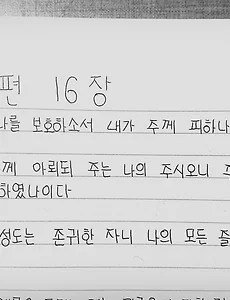 편 16 장
나를 보호하소서 내가 주께 피하나
께 아뢰되 주는 나의 주시오니
하였나이다
성도는 존귀한 자니 나의 모든 즐